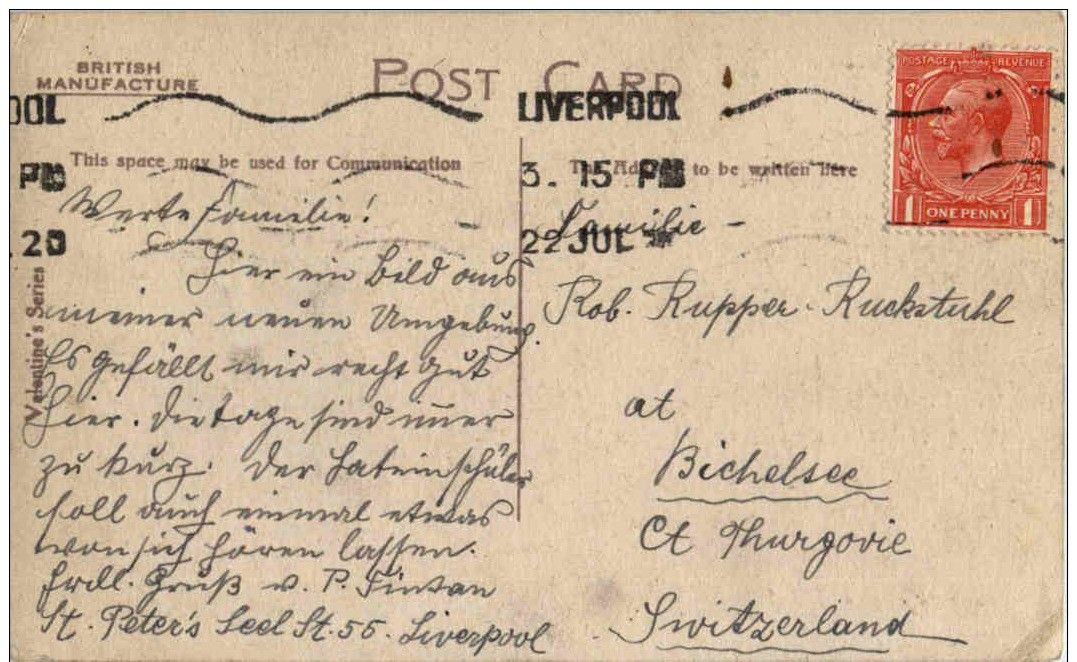 BRITISH
MANUFACTURE
POST CARD
OOL
PM
20
LIVERPOOL
3. 15 PM
22 JUL
POSTAGE REVENUE
1 ONE PENNY 1
This space may be used for Communication
The Address to be written here
Valentine's Series
Werte Familie!
Hier ein Bild aus
meiner neuen Umgebung.
Es gefällt mir recht gut
hier. Die Tage sind immer
zu kurz. Der Lateinschüler
soll auch einmal etwas
von sich hören lassen.
Frdl. Gruß v. P. Fintan
St. Peter's Seel St. 55. Liverpool
Familie
Rob. Rupper-Ruckstuhl
at
Bichelsee
Ct Thurgovie
Switzerland